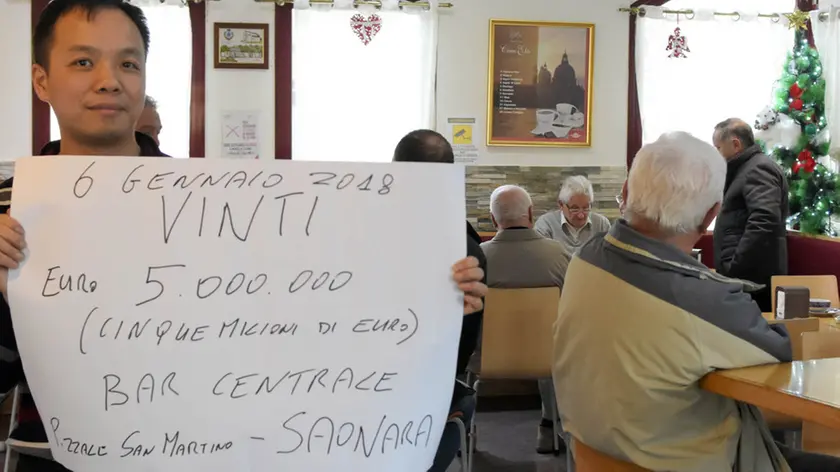 6 GENNAIO 2018
VINTI
EURO 5.000.000
(CINQUE MILIONI DI EURO)
BAR CENTRALE
P.ZZALE SAN MARTINO - SAONARA